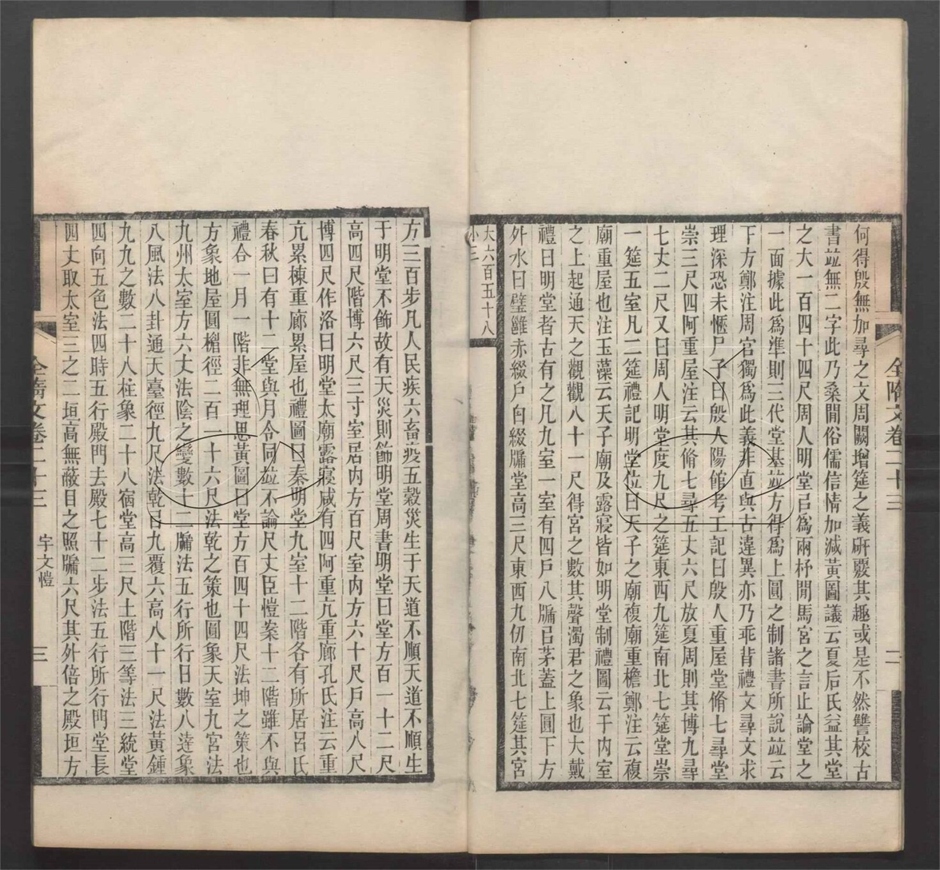 何得殷無加尋之文周闕增筵之義研覈其趣或是不然讐校古
書並無二字此乃桑閒俗儒信情加減黃圖議云夏后氏益其堂
之大一百四十四尺周人明堂㠯爲兩杼閒馬宮之言止論堂之
一面據此爲準則三代堂基並方得爲上圓之制諸書所說並云
下方鄭注周官獨爲此義非直與古違異亦乃乖背禮文尋文求
理深恐未愜尸子曰殷人陽館考工記曰殷人重屋堂脩七尋堂
崇三尺四阿重屋注云其脩七尋五丈六尺放夏周則其博九尋
七丈二尺又曰周人明堂度九尺之筵東西九筵南北七筵堂崇
一筵五室凡二筵禮記明堂位曰天子之廟複廟重檐鄭注云複
廟重屋也注玉藻云天子廟及露寢皆如明堂制禮圖云于内室
之上起通天之觀觀八十一尺得宮之數其聲濁君之象也大戴
禮曰明堂者古有之凡九室一室有四戶八牖㠯茅蓋上圓下方
外水曰璧雝赤綴戶白綴牖堂高三尺東西九仞南北七筵其宮
大六百五十八
小二
全隋文卷二十三
二
方三百步凡人民疾六畜疫五穀災生于天道不順天道不順生
于明堂不飾故有天災則飾明堂周書明堂曰堂方百一十二尺
高四尺階博六尺三寸室居内方百尺室内方六十尺戶高八尺
博四尺作洛曰明堂太廟露寢咸有四阿重亢重廊孔氏注云重
亢累棟重廊累屋也禮圖曰秦明堂九室十二階各有所居呂氏
春秋曰有十二堂與月令同並不論尺丈臣愷案十二階雖不與
禮合一月一階非無理思黃圖曰堂方百四十四尺法坤之策也
方象地屋圓楣徑二百一十六尺法乾之策也圓象天室九宮法
九州太室方六丈法陰之變數十二牖法五行所行日數八達象
八風法八卦通天臺徑九尺法乾㠯九覆六高八十一尺法黃鍾
九九之數二十八柱象二十八宿堂高三尺土階三等法三統堂
四向五色法四時五行殿門去殿七十二步法五行所行門堂長
四丈取太室三之二垣高無蔽目之照牖六尺其外倍之殿垣方
全隋文卷二十三
宇文愷
三